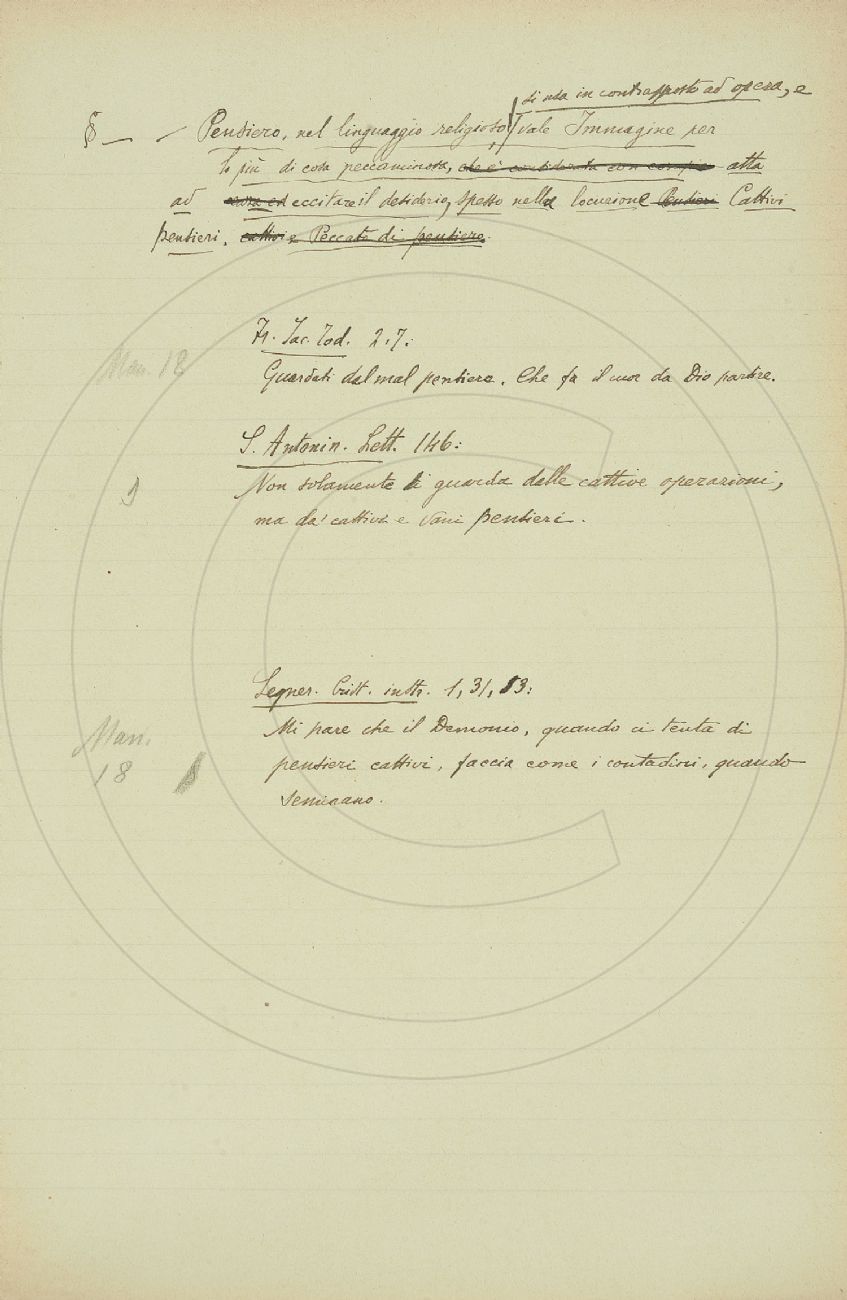 si usa in contrapposto ad opera, e
§ — — Pensiero, nel linguaggio religioso, vale Immagine per
lo più di cosa peccaminosa, che è considerata con atta
ad ed eccitare il desiderio, spesso nella locuzione Pensieri Cattivi
pensieri. cattivi e Peccato di pensiero.
Fr. Jac. Tod. 2. 7:
Man. 18
Guardati dal mal pensiero, Che fa il cuor da Dio partire.
S. Antonin. Lett. 146:
Non solamente si guarda dalle cattive operazioni,
ma da' cattivi e vani pensieri.
Segner. Crist. instr. 1, 31, 13:
Mi pare che il Demonio, quando ci tenta di
Man.
pensieri cattivi, faccia come i contadini, quando
18
seminano.